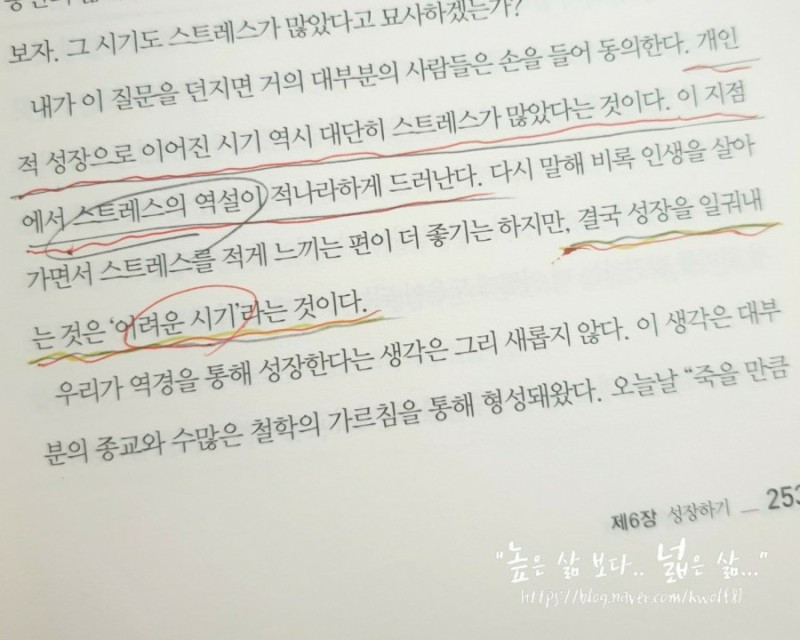 보자. 그 시기도 스트레스가 많았다고 묘사하겠는가?
내가 이 질문을 던지면 거의 대부분의 사람들은 손을 들어 동의한다. 개인
적 성장으로 이어진 시기 역시 대단히 스트레스가 많았다는 것이다. 이 지점
에서 스트레스의 역설이 적나라하게 드러난다. 다시 말해 비록 인생을 살아
가면서 스트레스를 적게 느끼는 편이 더 좋기는 하지만, 결국 성장을 일궈내
는 것은 '어려운 시기'라는 것이다.
우리가 역경을 통해 성장한다는 생각은 그리 새롭지 않다. 이 생각은 대부
분의 종교와 수많은 철학의 가르침을 통해 형성돼왔다. 오늘날 "죽을 만큼
제6장 성장하기 _ 253
"높은 삶 보다.. 넓은 삶..."